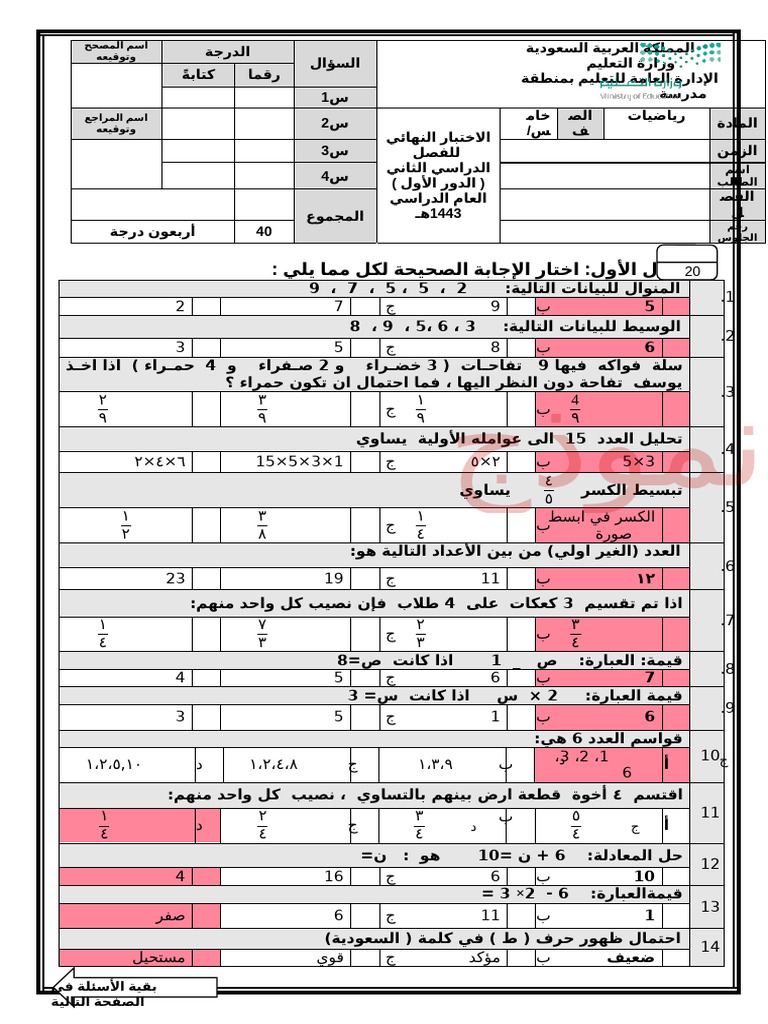 المملكة العربية السعودية
وزارة التعليم
الإدارة العامة للتعليم بمنطقة
مدرسة
وزارة التعليم
Ministry of Education
المادة
رياضيات
الصف
خامس/
الزمن
اسم الطالب
الفصل
رقم الجلوس
الاختبار النهائي
للفصل
الدراسي الثاني
( الدور الأول )
العام الدراسي
1443هـ
السؤال
الدرجة
اسم المصحح وتوقيعه
رقما
كتابةً
س1
س2
اسم المراجع وتوقيعه
س3
س4
المجموع
40
أربعون درجة
20
ل الأول: اختار الإجابة الصحيحة لكل مما يلي :
1. المنوال للبيانات التالية: 2 ، 5 ، 5 ، 7 ، 9
5 ب 9 ج 7 2
2. الوسيط للبيانات التالية: 3 ، 6 ،5 ، 9 ، 8
6 ب 8 ج 5 3
3. سلة فواكه فيها 9 تفاحـات ( 3 خضـراء و 2 صـفراء و 4 حمـراء ) اذا اخـذ
يوسف تفاحة دون النظر اليها ، فما احتمال ان تكون حمراء ؟
4/٩ ب ١/٩ ج ٣/٩ ٢/٩
4. تحليل العدد 15 الى عوامله الأولية يساوي
3×5 ب ٢×٥ ج 1×3×5×15 ٦×٤×٢
5. تبسيط الكسر ٤/٥ يساوي
الكسر في ابسط صورة ب ١/٤ ج ٣/٨ ١/٢
6. العدد (الغير اولي) من بين الأعداد التالية هو:
١٢ ب 11 ج 19 23
7. اذا تم تقسيم 3 كعكات على 4 طلاب فإن نصيب كل واحد منهم:
٣/٤ ب ٢/٣ ج ٧/٣ ١/٤
8. قيمة: العبارة: ص _ 1 اذا كانت ص=8
7 ب 6 ج 5 4
9. قيمة العبارة: 2 × س اذا كانت س= 3
6 ب 1 ج 5 3
10 قواسم العدد 6 هي:
أ 1، 2، 3، 6 ب ١،٣،٩ ج ١،٢،٤،٨ د ١،٢،٥،١٠
11 اقتسم ٤ أخوة قطعة ارض بينهم بالتساوي ، نصيب كل واحد منهم:
أ ٥/٤ ج ب ٣/٤ د ج ٢/٤ د ١/٤
12 حل المعادلة: 6 + ن =10 هو : ن=
10 ب 6 ج 16 4
13 قيمةالعبارة: 6 - 2× 3 =
1 ب 11 ج 6 صفر
14 احتمال ظهور حرف ( ط ) في كلمة ( السعودية)
ضعيف ب مؤكد ج قوي مستحيل
بقية الأسئلة في
الصفحة التالية
نموذج